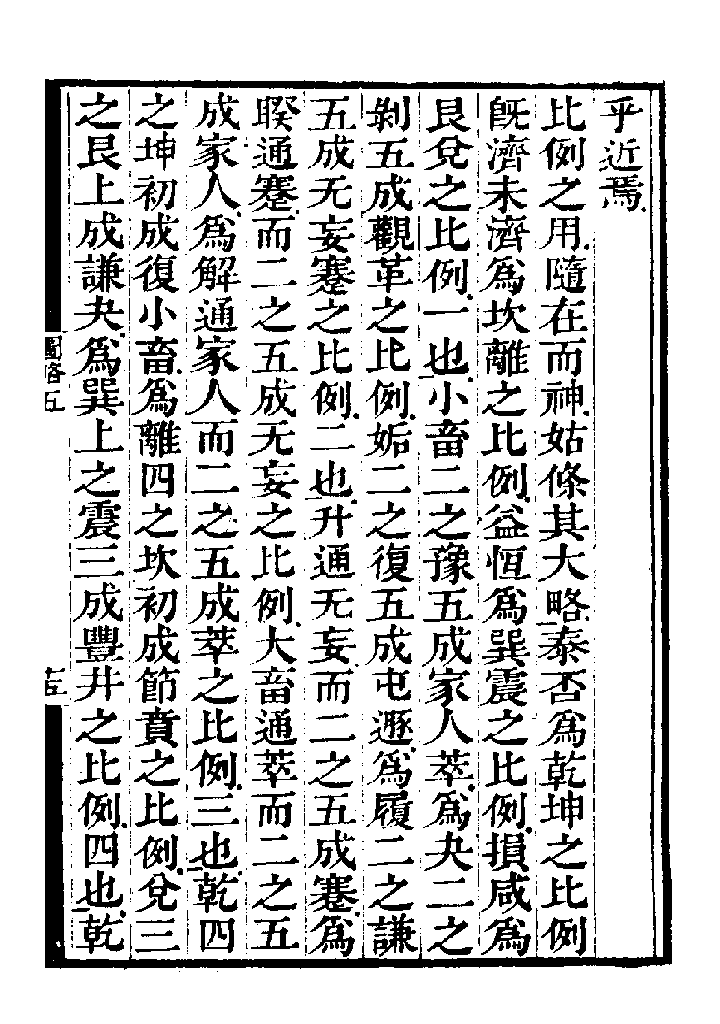 乎近焉
比例之用隨在而神姑條其大略泰否爲乾坤之比例
旣濟未濟爲坎離之比例益恒爲巽震之比例損咸爲
艮兌之比例一也小畜二之豫五成家人萃爲夬二之
剝五成觀革之比例姤二之復五成屯遯爲履二之謙
五成无妄蹇之比例二也升通无妄而二之五成蹇爲
睽通蹇而二之五成无妄之比例大畜通萃而二之五
成家人爲解通家人而二之五成萃之比例三也乾四
之坤初成復小畜爲離四之坎初成節賁之比例兌三
之艮上成謙夬爲巽上之震三成豐井之比例四也乾
圖略五